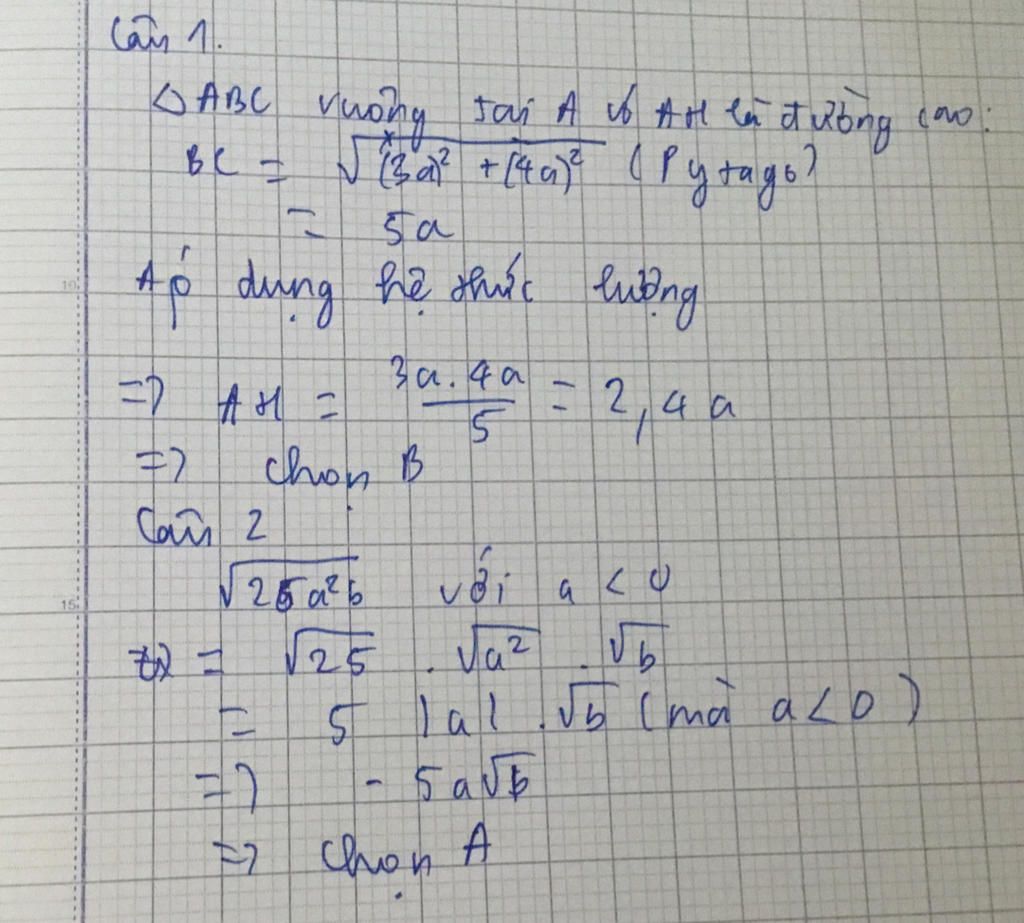 Câu 1.
△ABC vuông tại A có AH là đường cao:
BC = √((3a)² + (4a)²) (Pytago)
= 5a
Áp dụng hệ thức lượng
=> AH = 3a.4a / 5 = 2,4a
=> chọn B
Câu 2
√(25a²b) với a < 0
= √25 . √a² . √b
= 5 |a| . √b (mà a < 0)
=> - 5a√b
=> chọn A
10
15